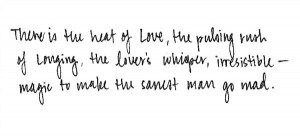 There is the heat of Love, the pulsing rush
of Longing, the lover's whisper, irresistible—
magic to make the sanest man go mad.